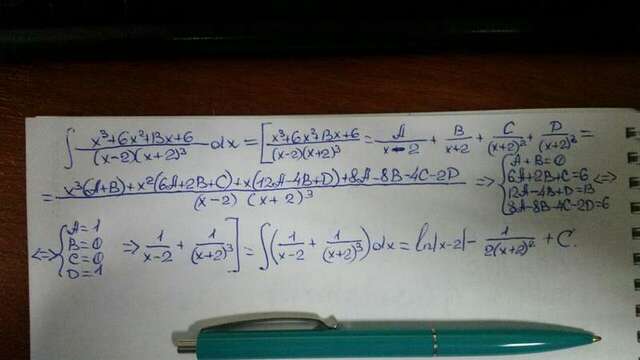 ∫ (x³+6x²+13x+6)/((x-2)(x+2)³) dx = [ (x³+6x²+13x+6)/((x-2)(x+2)³) = A/(x-2) + B/(x+2) + C/(x+2)² + D/(x+2)³ =
= (x³(A+B)+x²(6A+2B+C)+x(12A-4B+D)+8A-8B-4C-2D)/((x-2)(x+2)³) ⇒ { A+B=0
6A+2B+C=6 ⇔
12A-4B+D=13
8A-8B-4C-2D=6
⇔ { A=1
B=0
C=0
D=1
⇒ 1/(x-2) + 1/(x+2)³ ] = ∫(1/(x-2) + 1/(x+2)³)dx = ln|x-2| - 1/(2(x+2)²) + C.